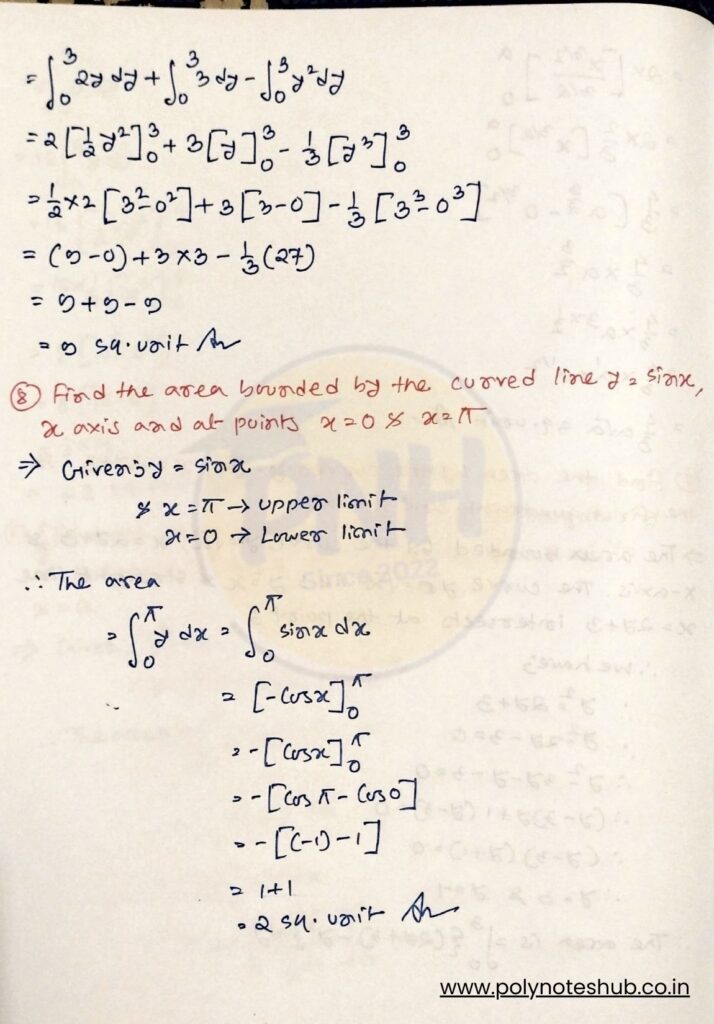 = ∫₀³ 2y dy + ∫₀³ 3 dy - ∫₀³ y² dy
= 2 [½ y²]₀³ + 3 [y]₀³ - ⅓ [y³]₀³
= ½ × 2 [3² - 0²] + 3 [3 - 0] - ⅓ [3³ - 0³]
= (9 - 0) + 3 × 3 - ⅓ (27)
= 9 + 9 - 9
= 9 sq. unit An
⑧ Find the area bounded by the curved line y = sinx,
x axis and at points x = 0 & x = π
⇒ Given; y = sinx
& x = π → upper limit
x = 0 → Lower limit
∴ The area
= ∫₀^π y dx = ∫₀^π sinx dx
= [-cosx]₀^π
= -[cosx]₀^π
= -[cos π - cos 0]
= -[(-1) - 1]
= 1+1
= 2 sq. unit An
PNH
Since 2022
www.polynoteshub.co.in